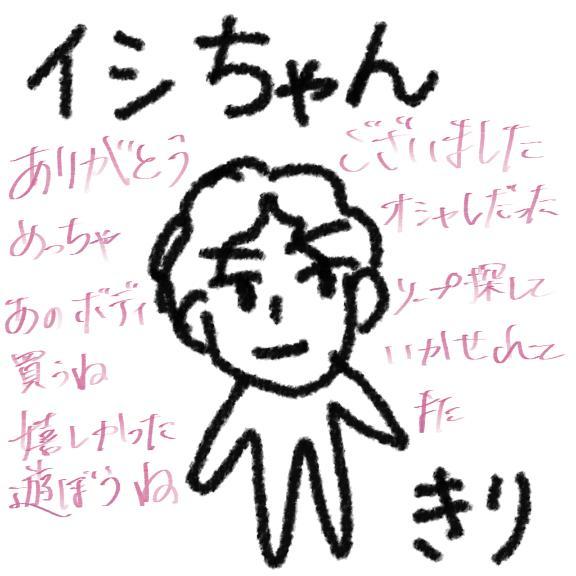 イシちゃん
ありがとう ございました
めっちゃ オシャレだった
あのボディ ソープ探して
買うね いかせんて
嬉しかった また
遊ぼうね
きり